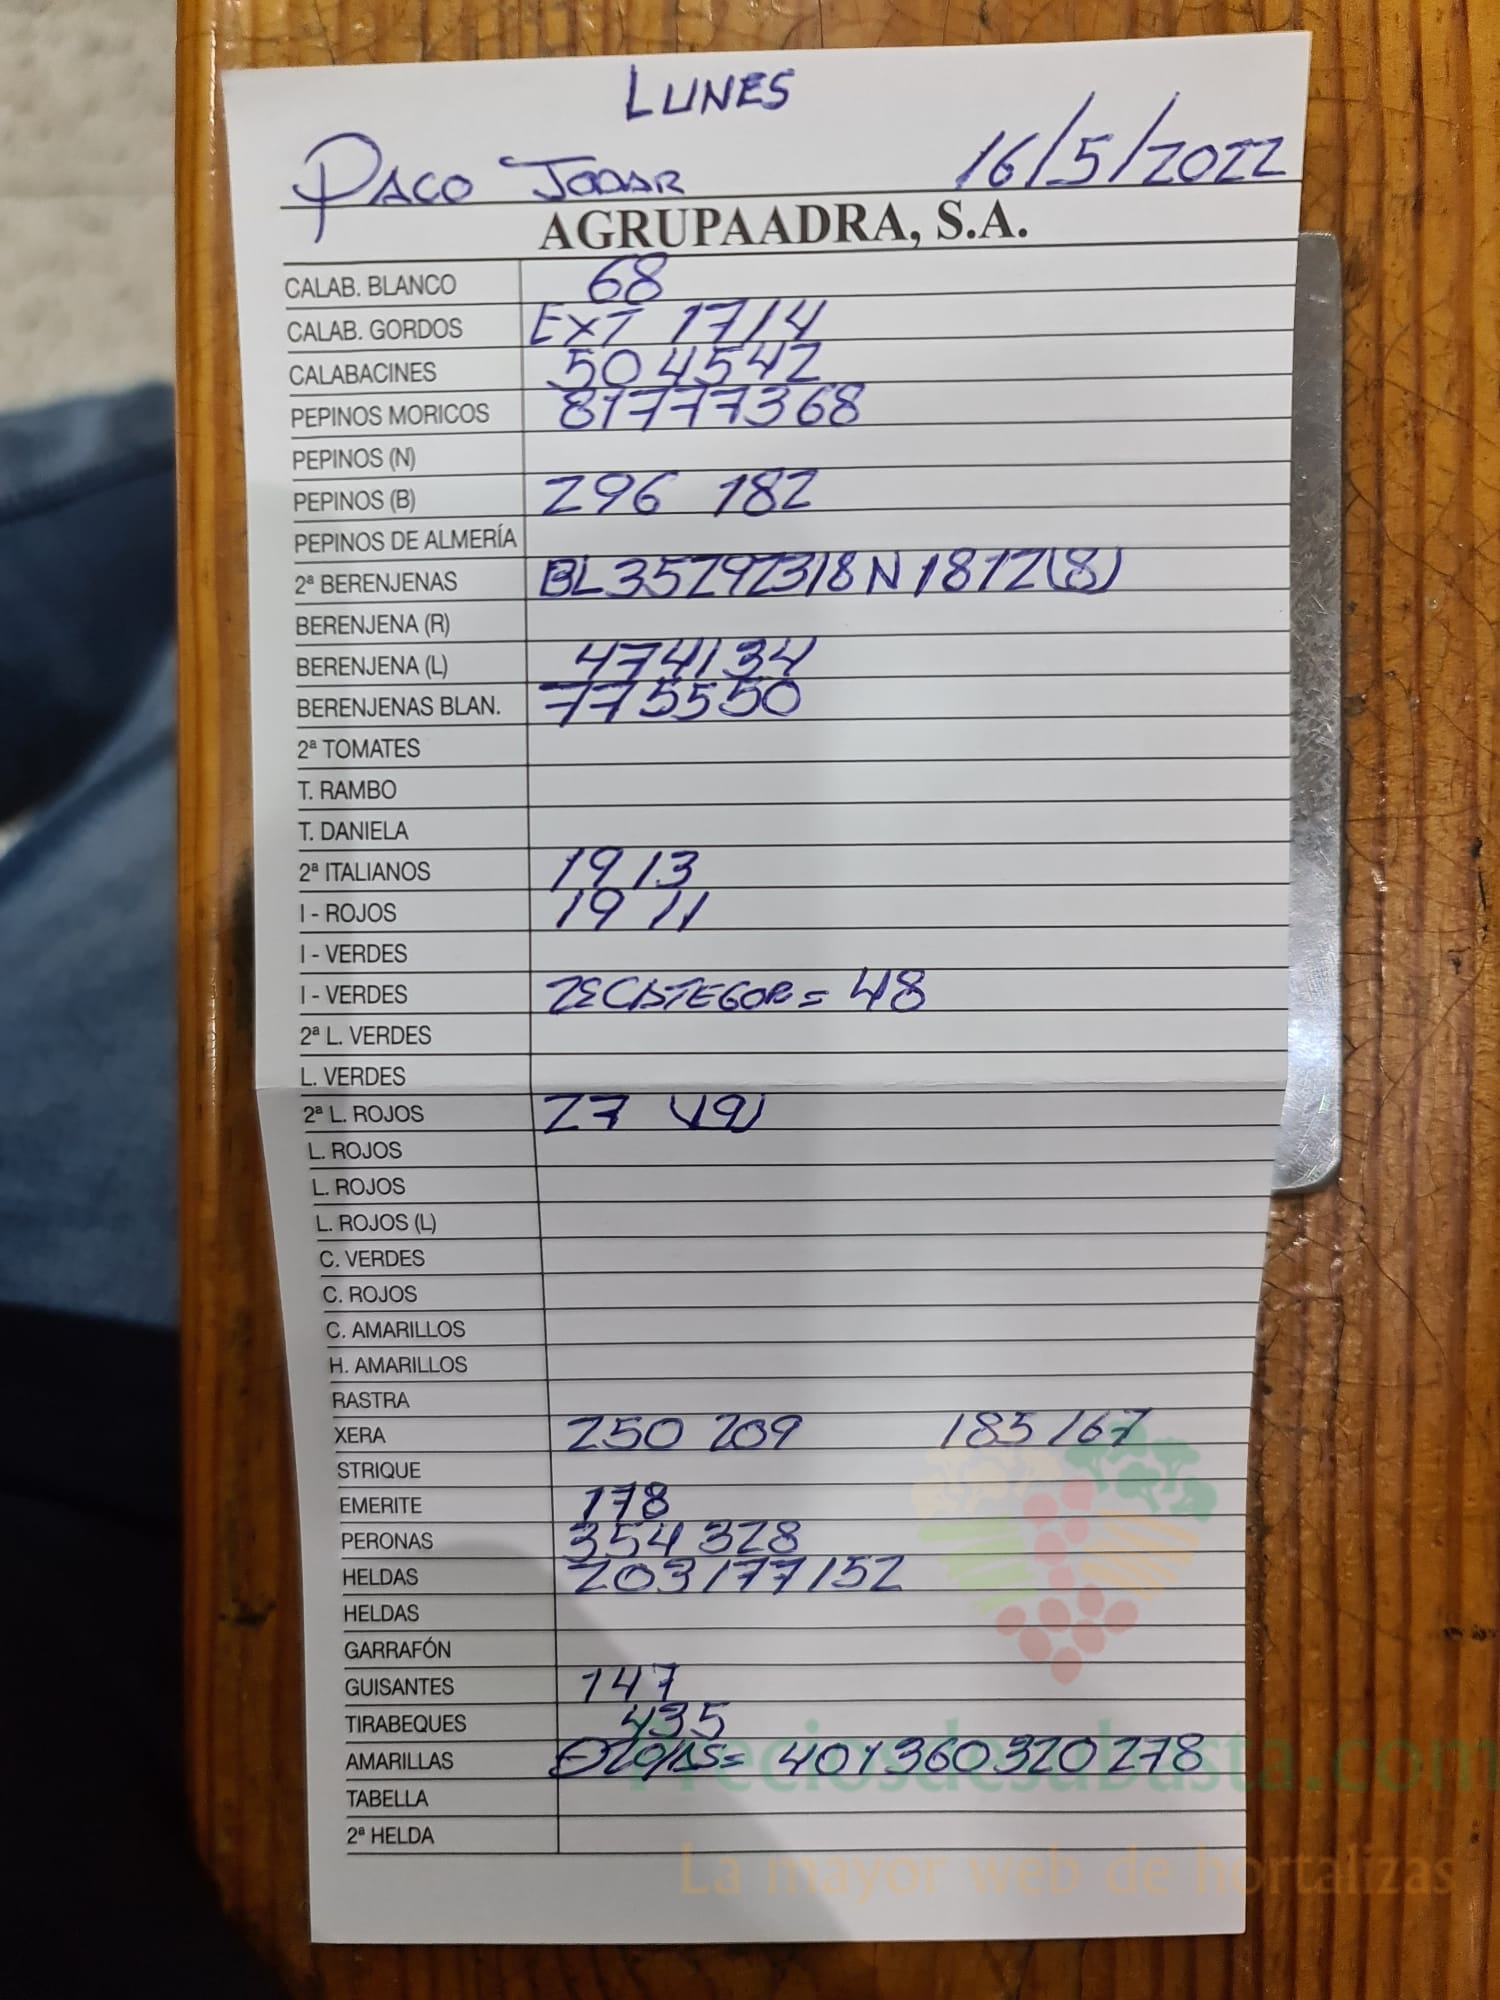 LUNES
PACO JODAR 16/5/2022
AGRUPAADRA, S.A.
CALAB. BLANCO 68
CALAB. GORDOS EXT 17 14
CALABACINES 50 45 42
PEPINOS MORICOS 81 77 73 68
PEPINOS (N)
PEPINOS (B) 296 182
PEPINOS DE ALMERÍA
2ª BERENJENAS BL 35 29 23 18 N 18 12 (8)
BERENJENA (R)
BERENJENA (L) 47 41 34
BERENJENAS BLAN. 77 55 50
2ª TOMATES
T. RAMBO
T. DANIELA
2ª ITALIANOS 19 13
I - ROJOS 19 11
I - VERDES
I - VERDES = 48
2ª L. VERDES
L. VERDES
2ª L. ROJOS 27 (19)
L. ROJOS
L. ROJOS
L. ROJOS (L)
C. VERDES
C. ROJOS
C. AMARILLOS
H. AMARILLOS
RASTRA
XERA 250 209 185 167
STRIQUE
EMERITE 178
PERONAS 354 328
HELDAS 203 177 152
HELDAS
GARRAFÓN
GUISANTES 147
TIRABEQUES 435
AMARILLAS = 401 360 320 278
TABELLA
2ª HELDA
Preciosdesubasta.com
La mayor web de hortalizas